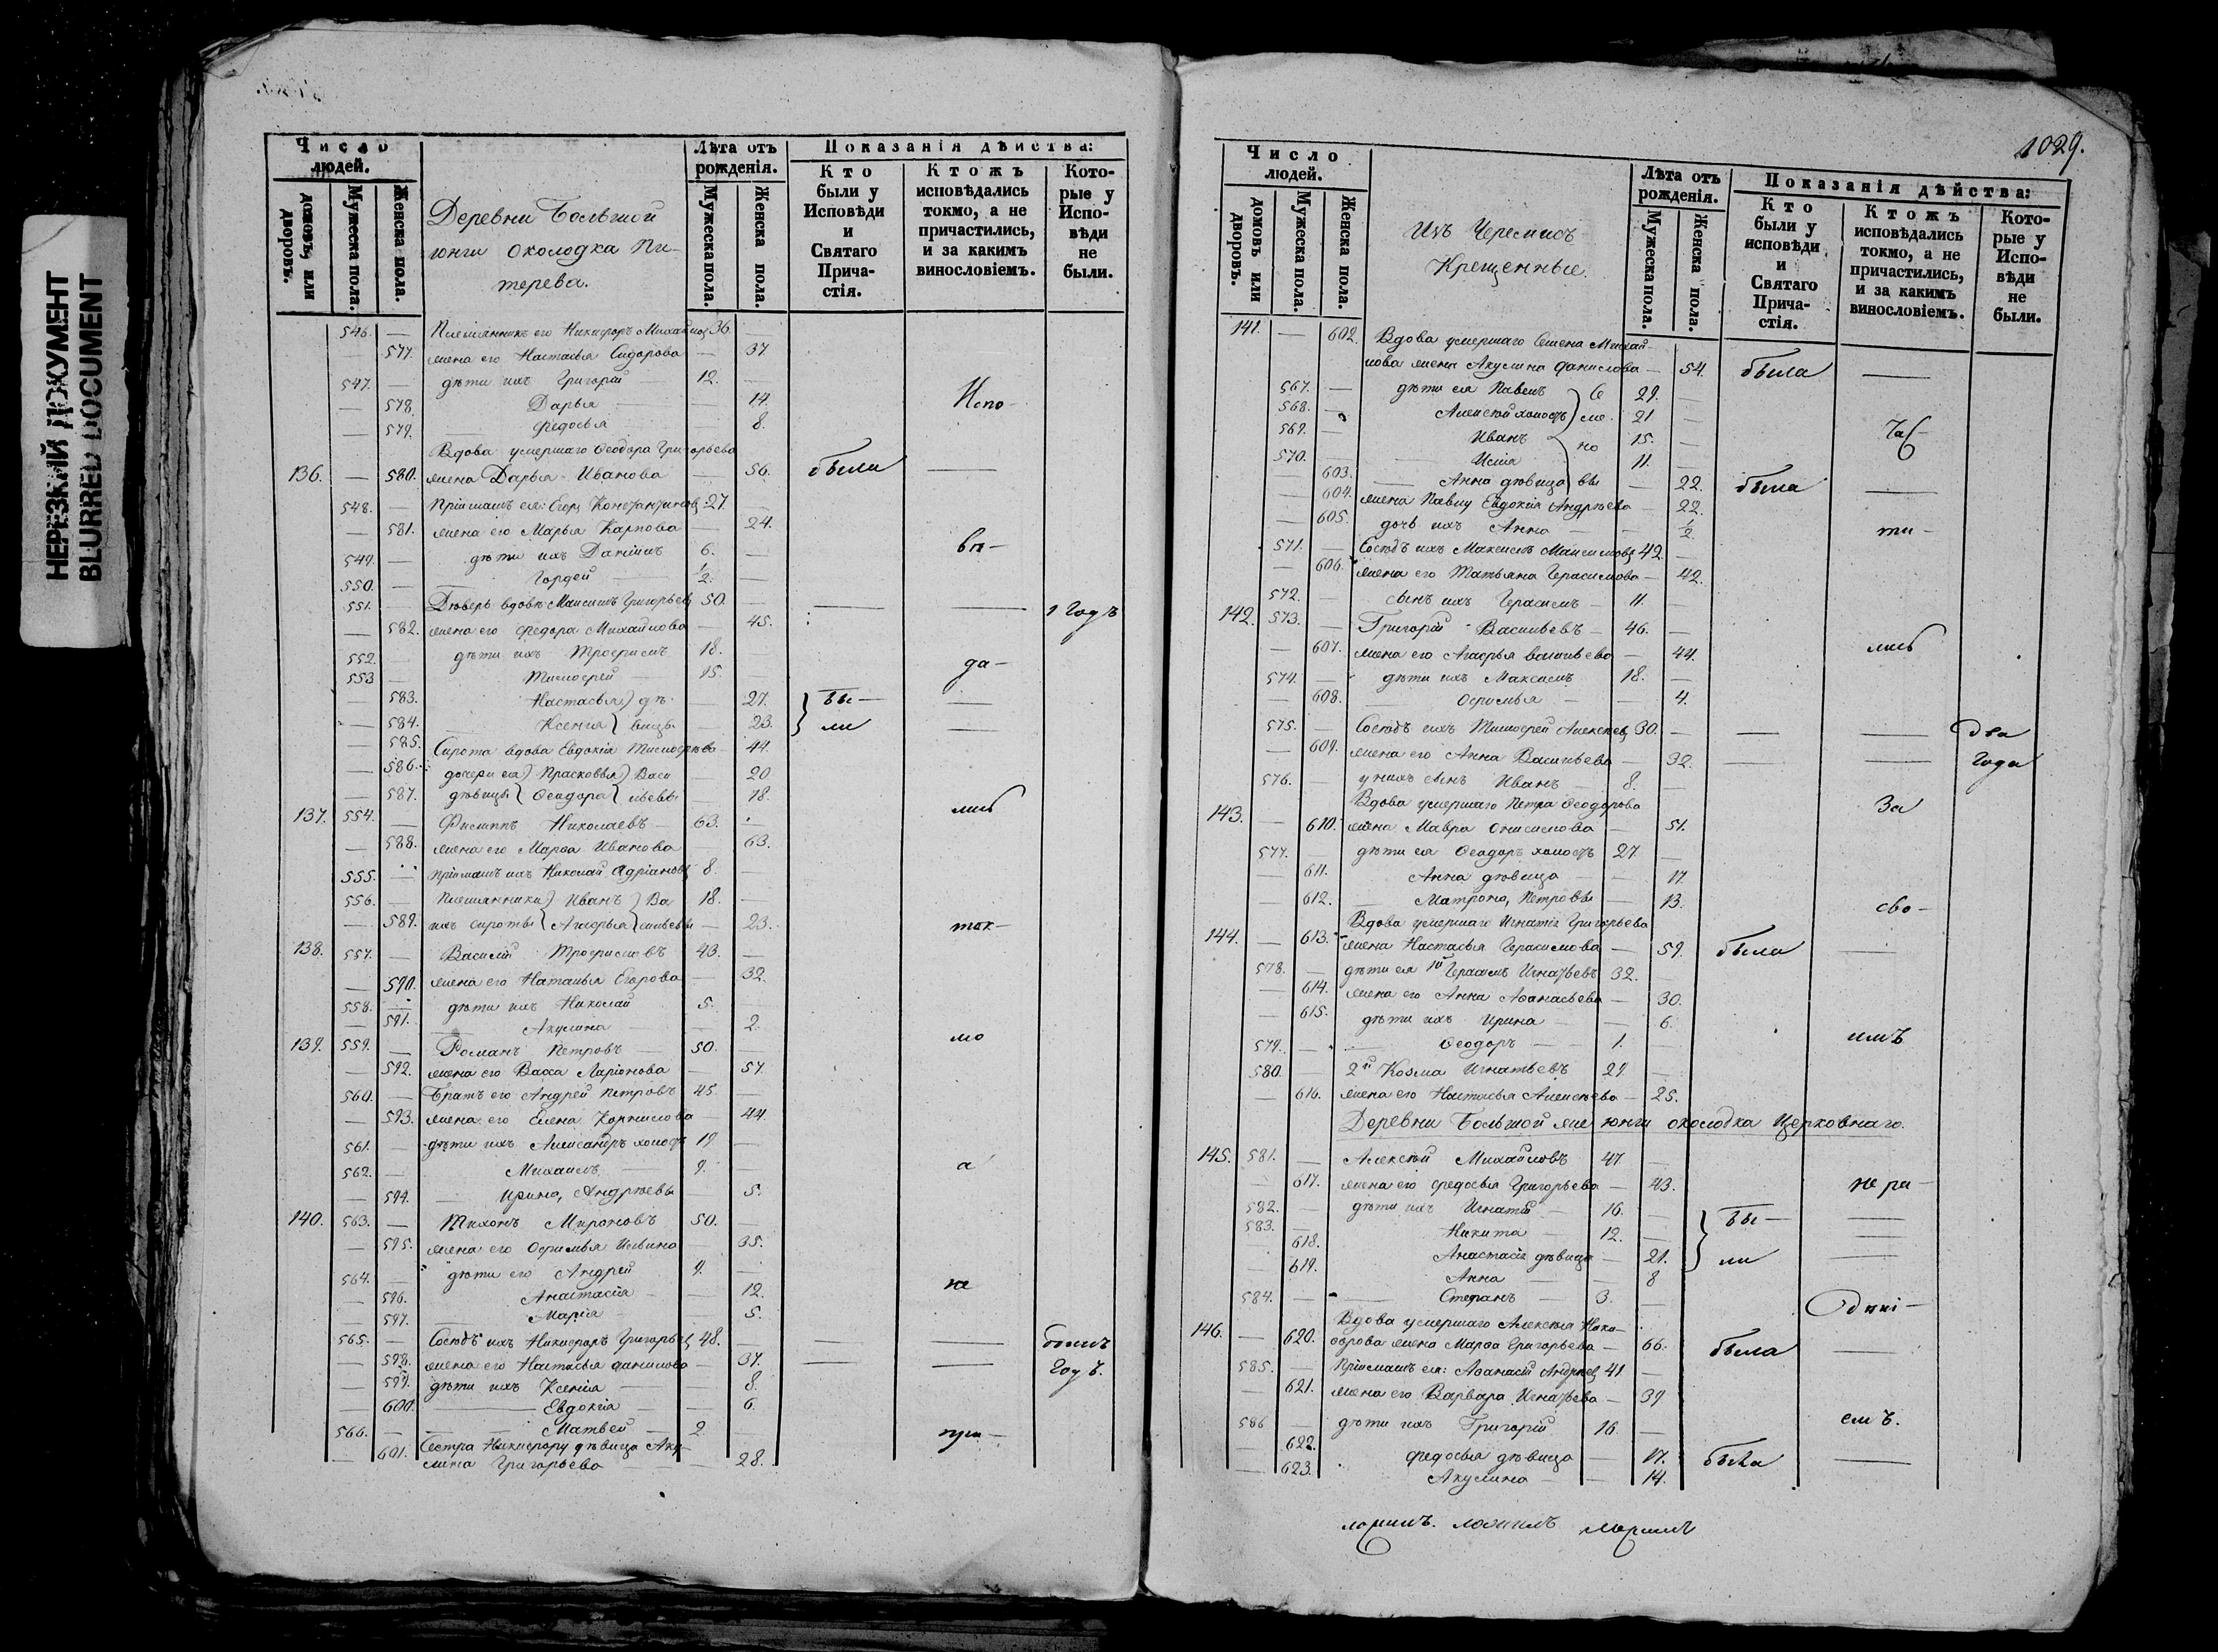 НЕРЕЗКИЙ ДОКУМЕНТ
BLURRED DOCUMENT
Число людей.
домовъ, или дворовъ.
Мужеска пола.
Женска пола.
Деревни Большой
юнги околодка Пи-
терева.
Лѣта отъ рожденія.
Мужеска пола.
Женска пола.
Показанія дѣйства:
Кто были у Исповѣди и Святаго Прича-стія.
Ктожъ исповѣдались токмо, а не причастились, и за какимъ винословіемъ.
Кото-рые у Испо-вѣди не были.
546. — Племянникъ его Никифоръ Михайлов 36. —
— 577. жена его Настасья Сидорова — 37.
547. — дѣти ихъ Григорій — 12. —
— 578. Дарья — 14. Испо-
— 579. Федосья — 8.
Вдова умершаго Ѳеодора Григорьева
136. — 580. жена Дарья Иванова — 56. была —
548. — Пріемышъ ея: Егоръ Константинов 27. —
— 581. жена его Марья Карпова — 24.
549. — дѣти ихъ Даніилъ 6. — вѣ-
550. — Гордей — 1/2. —
551. — Дѣверь вдовѣ Максимъ Григорьев 50. — — — 1 Годъ
— 582. жена его Федора Михайлова — 45.
552. — дѣти ихъ Трофимъ 18. —
553 — Тимофей — 15. — да-
— 583. Настасья) дѣ- — 27. } бы- —
— 584. Ксенія } вицы — 23. } ли —
— 585. Сирота вдова Евдокія Тимофѣева — 44.
— 586. дочери ея) Прасковья) Васи — 20
— 587. дѣвицы { Ѳеодора { льевы — 18.
137. 554. — Филиппъ Николаевъ — 63. — лись
— 588. жена его Марѳа Иванова — 63.
555. — пріемышъ ихъ Николай Адріановъ 8. —
556. — Племянники) Иванъ ) Ва 18. —
— 589. ихъ сироты { Агафья { сильевы — 23. ток-
138. 557. — Василій Трофимовъ 43. —
— 590. жена его Наталья Егорова — 32.
558. — дѣти ихъ Николай 5. —
— 591. Акулина — 2.
139. 559. — Романъ Петровъ — 50. — мо
— 592. жена его Васса Ларіонова — 51.
560. — Братъ его Андрей Петровъ 45. —
— 593. жена его Елена Корнилова — 44.
561. — дѣти ихъ Александръ холостъ 19 —
562. — Михаилъ — 9. — а
— 594. — Ирина, Андрѣевы — 5.
140. 563. — Тихонъ Мироновъ 50. —
— 595. жена его Офимья Ильина — 35.
564. — дѣти его Андрей 9. —
— 596. Анастасія — 12. не
— 597. Марія — 5.
565. — Сосѣдъ ихъ Никифоръ Григорьев 48. — — — болитъ
— 598. жена его Настасья Данилова — 37. — — Годъ.
— 599. дѣти ихъ Ксенія — 8.
— 600. — Евдокія — 6.
566. — Матвей — 2 — при-
— 601. Сестра Никифору дѣвица Аку-
лина Григорьева — 28.
1029.
Число людей.
домовъ или дворовъ.
Мужеска пола.
Женска пола.
Изъ Черемисъ
Крещенные.
Лѣта отъ рожденія.
Мужеска пола.
Женска пола.
Показанія дѣйства:
Кто были у исповѣди и Святаго Прича-стія.
Ктожъ исповѣдались токмо, а не причастились, и за какимъ винословіемъ.
Кото-рые у Испо-вѣди не были.
141. — 602. Вдова умершаго Семена Михай-
лова жена Акулина Данилова — 54. была —
567. — дѣти ея Павелъ ) Се 29. —
568. — Алексѣй холостъ ) ме 21 —
569. — Иванъ но 15. — час-
570. — Илія 11. —
— 603. Анна дѣвица) вы — 22. была —
— 604. жена Павлу Евдокія Андрѣева — 22.
— 605. дочь ихъ Анна — 1/2. ти-
571. — Сосѣдъ ихъ Максимъ Максимовъ 42. —
— 606. жена его Татьяна Герасимова — 42.
572. — сынъ ихъ Герасимъ — 11. —
142. 573. — Григорій Васильевъ — 46. —
— 607. жена его Агафья Васильева — 44. лись
574. — дѣти ихъ Максимъ 18. —
— 608. Офимья — 4.
575. — Сосѣдъ ихъ Тимофей Алексѣев 30. — — — два
— 609. жена его Анна Васильева — 32. — — Года
576. у нихъ сынъ Иванъ — 8. —
Вдова умершаго Петра Ѳеодорова За
143. — 610. жена Мавра Онисимова — 51.
577. дѣти ея Ѳеодоръ холостъ 27. —
— 611. Анна дѣвица — 17
— 612. Матрона, Петровы — 13. сво-
Вдова умершаго Игнатія Григорьева
144. — 613. жена Настасья Герасимова — 59. была —
578. — дѣти ея 1й Герасимъ Игнатьевъ 32. —
— 614. жена его Анна Аѳанасьева — 30.
— 615. дѣти ихъ Ирина — 6.
579. — Ѳеодоръ — 1. — имъ
580. — 2й Козма Игнатьевъ 29. —
— 616. жена его Настасья Алексѣева — 25.
Деревни Большой же юнги околодка Церковнаго.
145. 581. — Алексѣй Михайловъ 47. —
— 617. жена его Федосья Григорьева — 43. нера-
582. — дѣти ихъ Игнатій — 16. — } бы- —
583. — Никита — 12. —
618. Анастасія дѣвица — 21. } ли —
— 619. Анна — 8
584. — Стефанъ — 3. — дѣні-
Вдова умершаго Алексѣя Ники-
146. — 620. форова жена Марѳа Григорьева — 66. была —
585. — Пріемышъ ея: Аѳанасій Андрѣев 41. —
— 621. жена его Варвара Игнатьева — 39
586 — дѣти ихъ Григорій 16. — емъ.
622.
— 623. Федосья дѣвица — 17. была —
Акулина — 14.